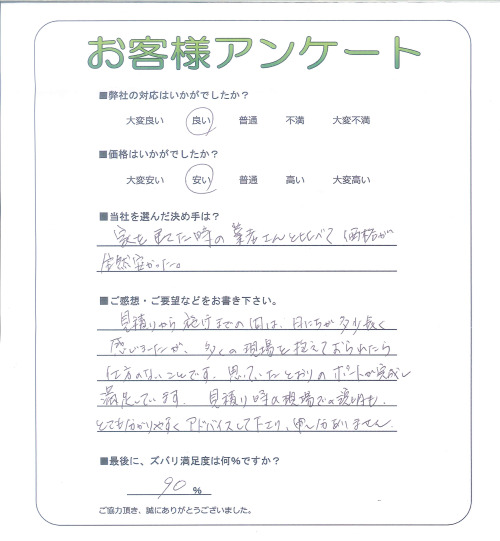 お客様アンケート
■弊社の対応はいかがでしたか？
大変良い 良い 普通 不満 大変不満
■価格はいかがでしたか？
大変安い 安い 普通 高い 大変高い
■当社を選んだ決め手は？
家を建てた時の業者さんと比べて価格が
全然安かった。
■ご感想・ご要望などをお書き下さい。
見積りから までの間は、日にちが多少長く
感じましたが、多くの現場を抱えておられたら
仕方のないことです。思っていたとおりのポートが完成し
満足しています。見積り時の現場での説明も、
とても分かりやすくアドバイスして下さり、申し分ありません。
■最後に、ズバリ満足度は何％ですか？
90 ％
ご協力頂き、誠にありがとうございました。